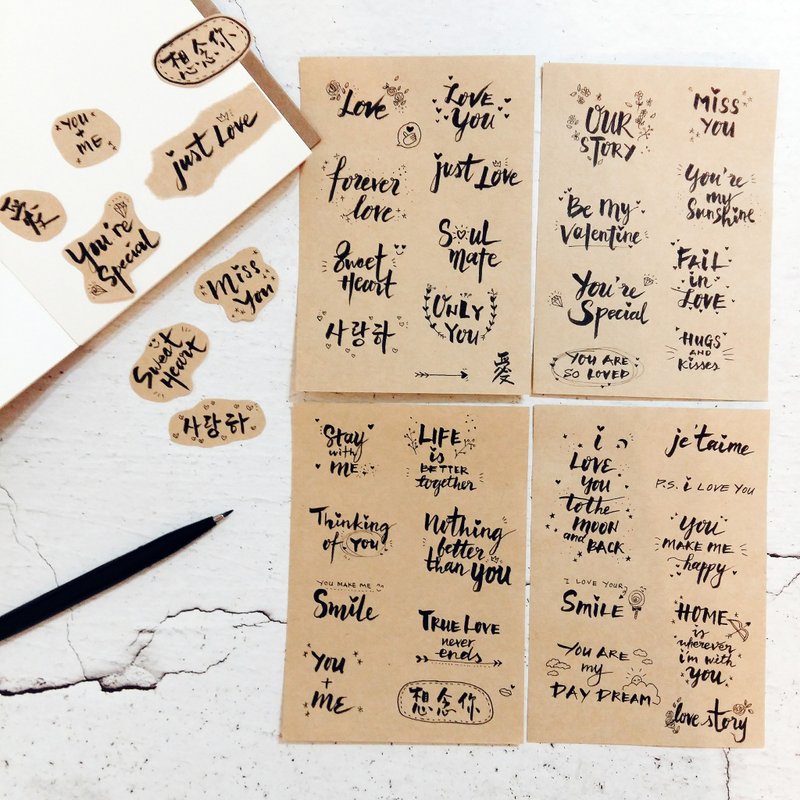 想念你
YOU
+
ME
just Love
愛
You're
Special
Miss
You
Sweet
Heart
사랑하
Love
LOVE
You
forever
love
just Love
Sweet
Heart
SOUL
MATE
사랑하
ONLY
YOU
愛
OUR
STORY
MISS
YOU
Be My
Valentine
You're
my
Sunshine
You're
Special
FALL
in
LOVE
YOU ARE
SO LOVED
HUGS
AND
Kisses
Stay
with
ME
LIFE
is
BETTER
together
Thinking
of YOU
Nothing
better
than you
YOU MAKE ME
Smile
TRUE LOVE
never
ends
YOU
+
ME
想念你
i
LOVE
YOU
to the
MOON
and
BACK
je t'aime
P.S. i LOVE YOU
YOU
MAKE ME
happy
I LOVE YOUR
SMILE
HOME
is
wherever
i'm with
YOU
YOU ARE
my
DAY DREAM
love story